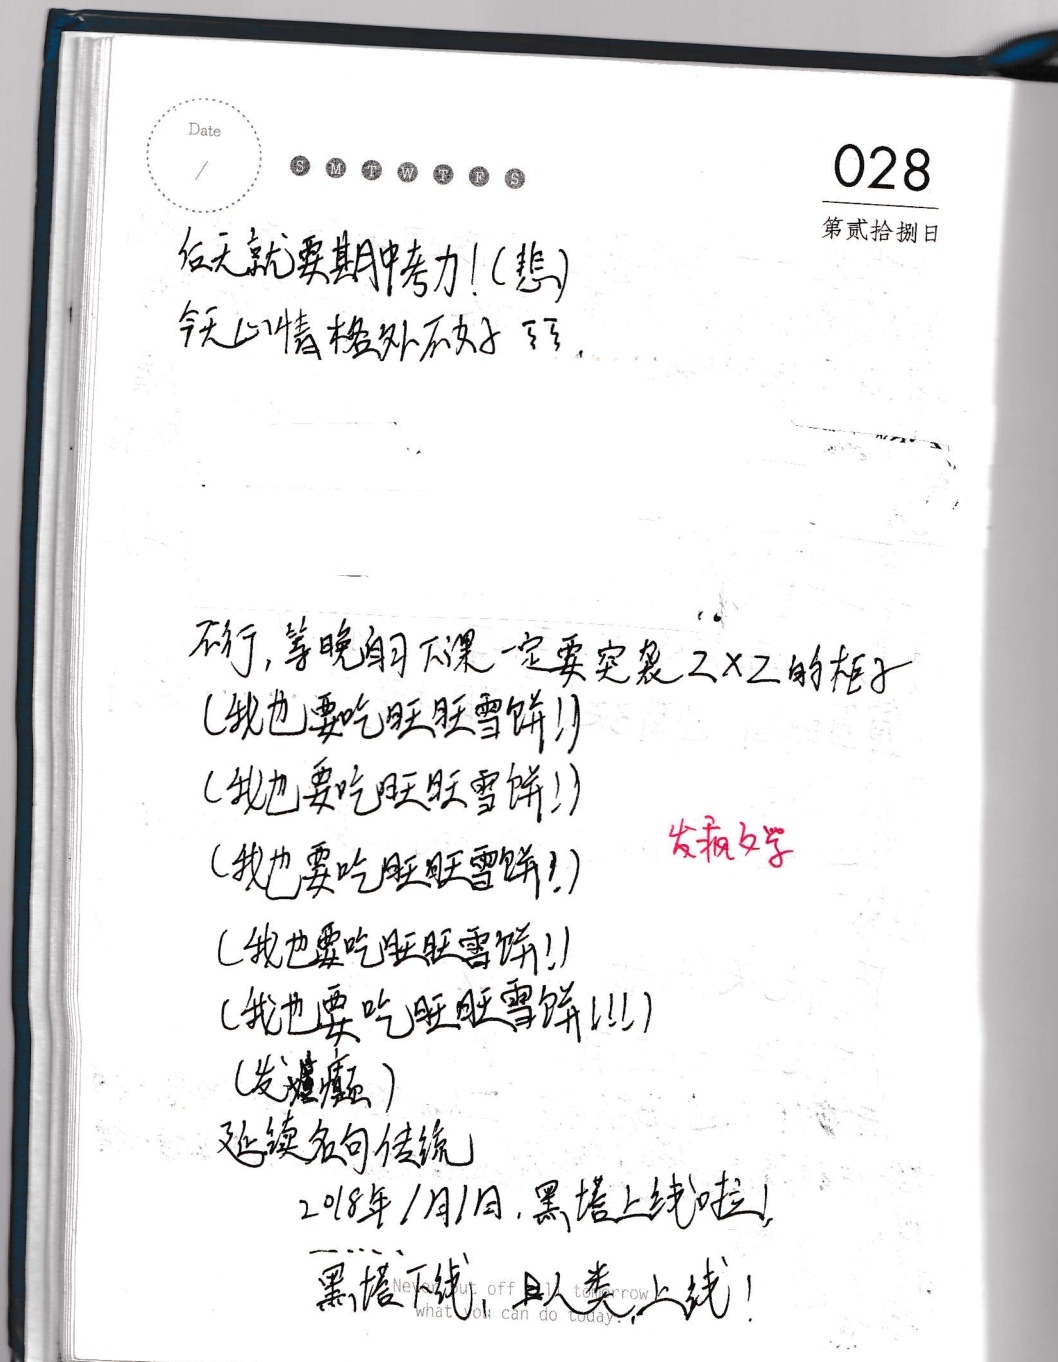 Date
/
S M T W T F S
028
第贰拾捌日
天就要期中考力!(悲)
今天心情格外不好
不行,等晚自习下课一定要突袭ZXZ的柜子
(我也要吃旺旺雪饼!)
(我也要吃旺旺雪饼!)
(我也要吃旺旺雪饼!)
发疯文学
(我也要吃旺旺雪饼!)
(我也要吃旺旺雪饼!!!)
(发癫)
延续名句传统
2018年1月1日,黑塔上线啦!
黑塔下线,人类上线!
Never put off till tomorrow
what you can do today.